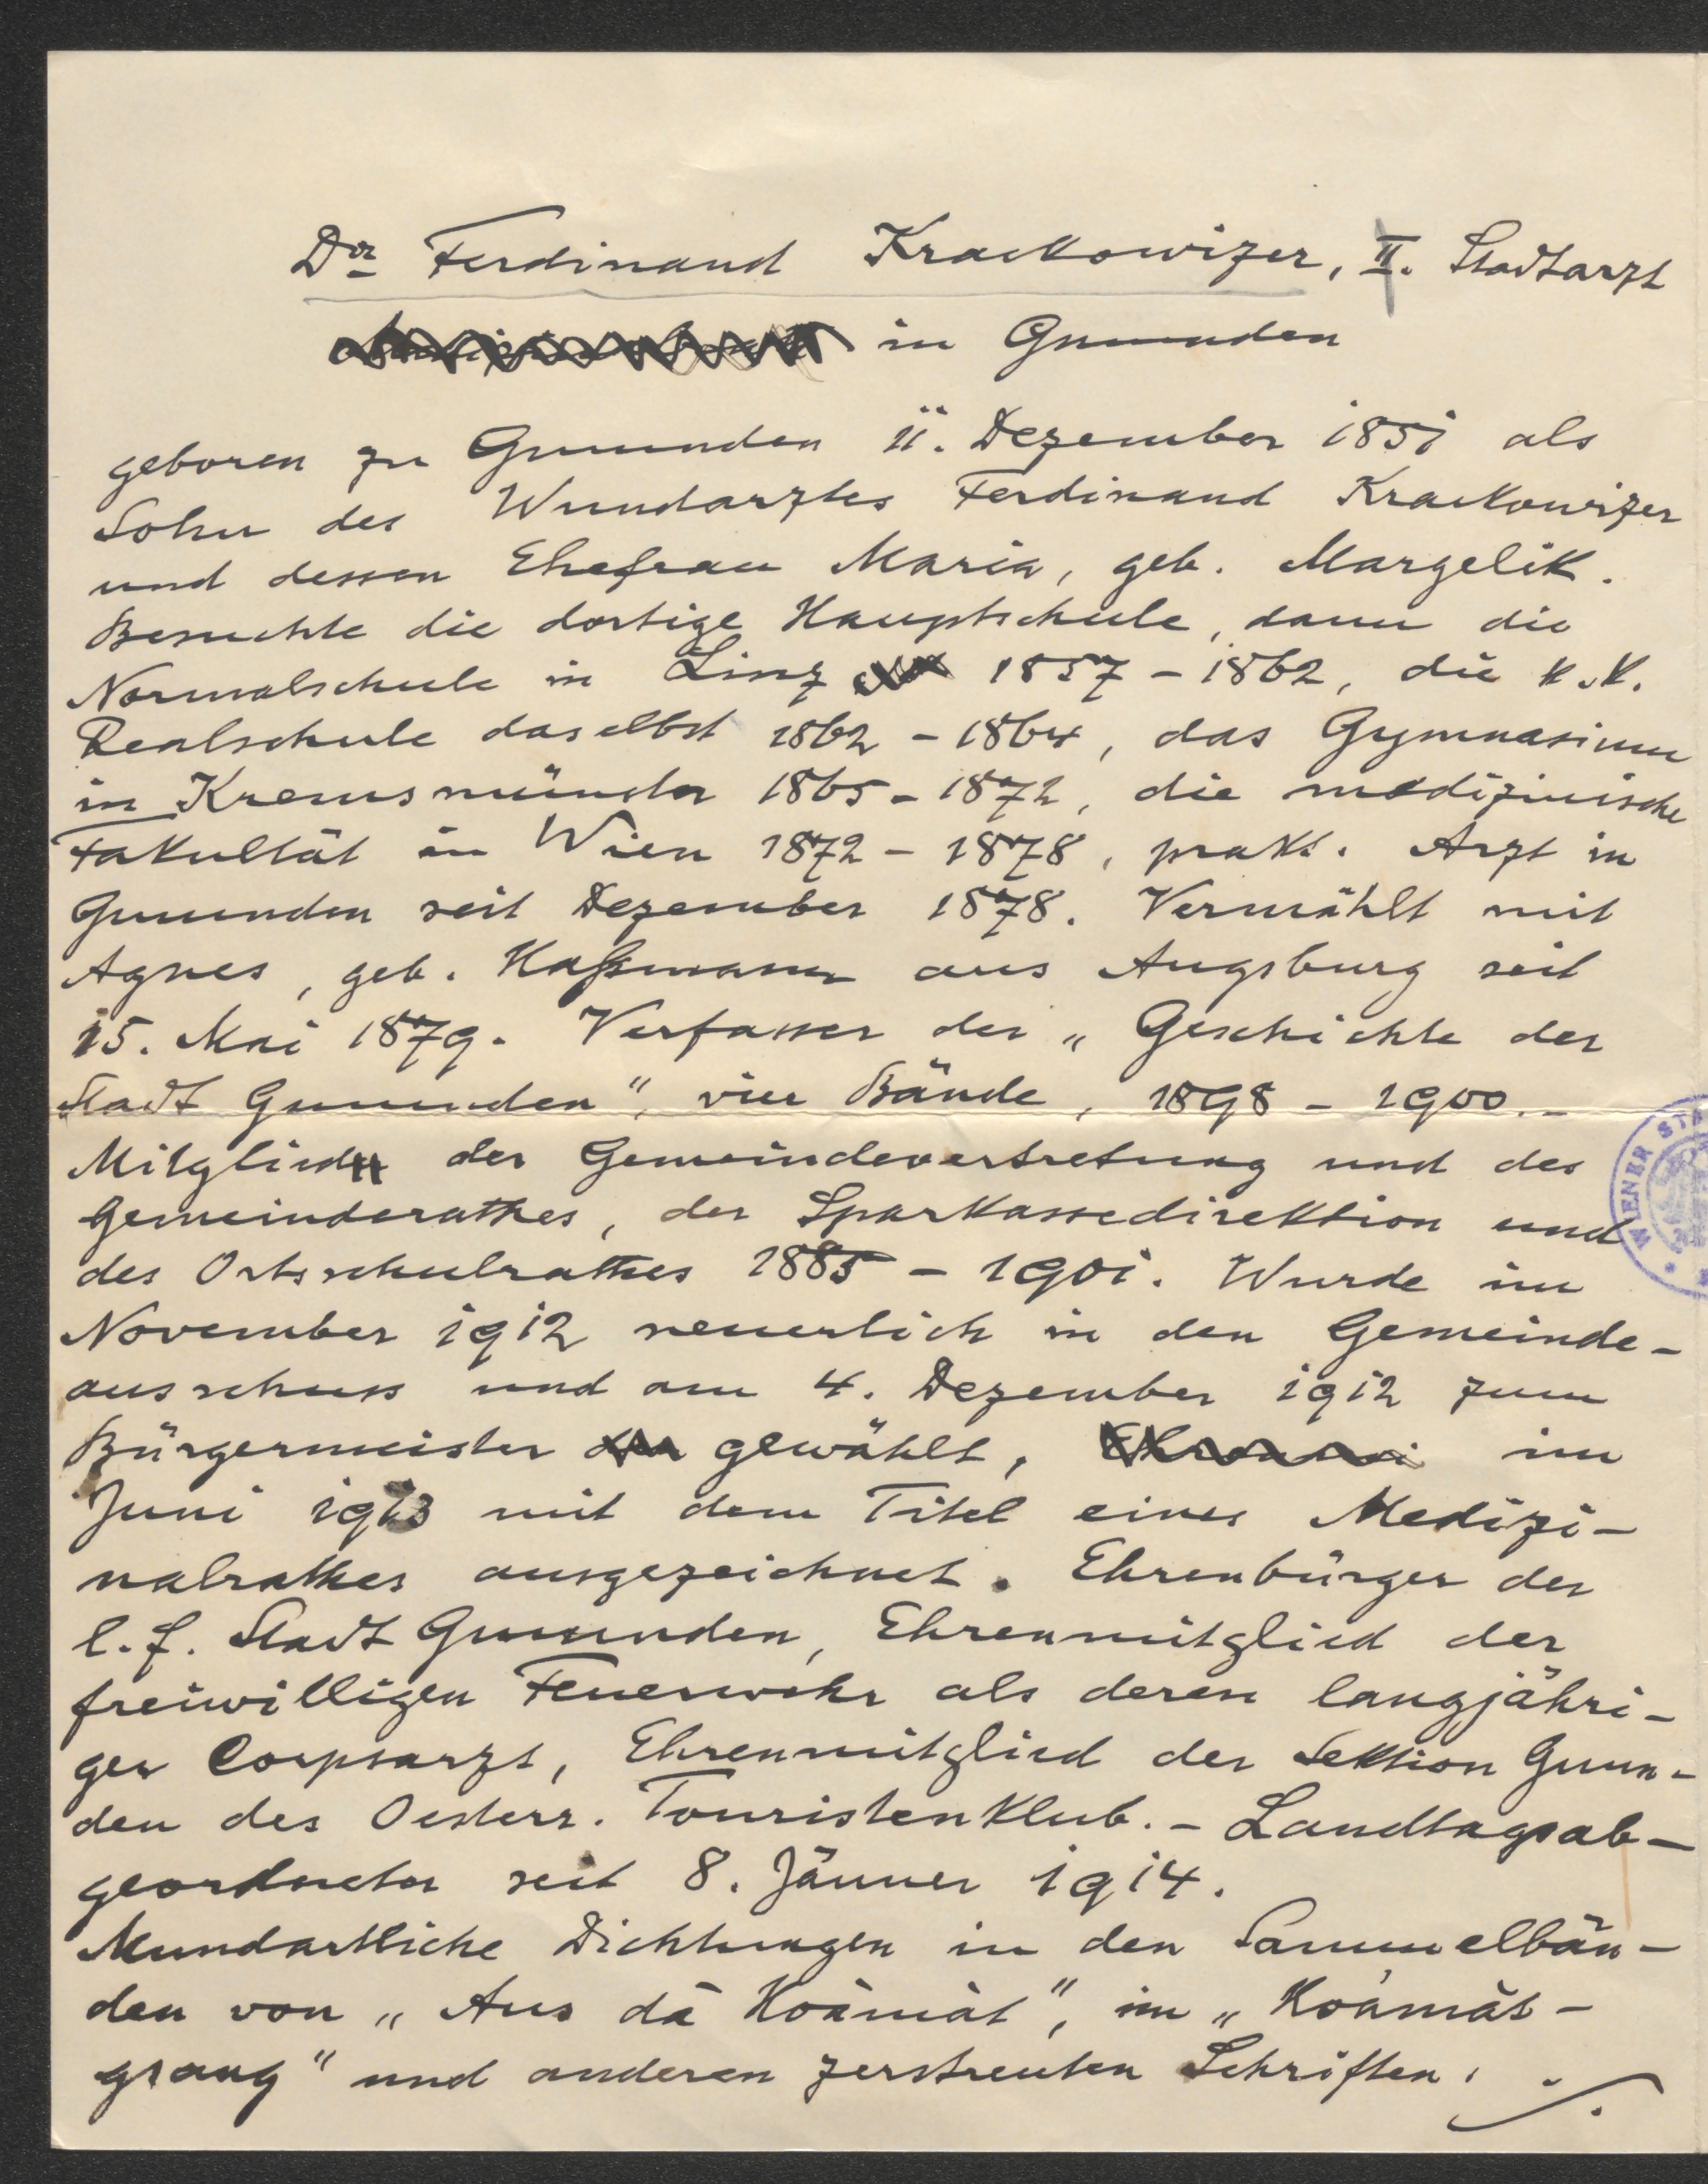 Dr Ferdinand Krackowizer, II. Stadtarzt
in Gmunden
geboren zu Gmunden 11. Dezember 1851 als
Sohn des Wundarztes Ferdinand Krackowizer
und dessen Ehefrau Maria, geb. Margelik.
Besuchte die dortige Hauptschule, dann die
Normalschule in Linz 1857 - 1862, die k.k.
Realschule daselbst 1862 - 1864, das Gymnasium
in Kremsmünster 1865 - 1872, die medizinische
Fakultät in Wien 1872 - 1878, prakt. Arzt in
Gmunden seit Dezember 1878. Vermählt mit
Agnes, geb. Haßmann aus Augsburg seit
15. Mai 1879. Verfasser der „Geschichte der
Stadt Gmunden", vier Bände, 1898 - 1900. -
Mitglied der Gemeindevertretung und des
Gemeinderathes, der Sparkassedirektion und
des Ortsschulrathes 1885 - 1901. Wurde im
November 1912 neuerlich in den Gemeinde-
ausschuss und am 4. Dezember 1912 zum
Bürgermeister gewählt, im
Juni 1913 mit dem Titel eines Medizi-
nalrathes ausgezeichnet. Ehrenbürger der
l. f. Stadt Gmunden, Ehrenmitglied der
freiwilligen Feuerwehr als deren langjähri-
ger Corpsarzt, Ehrenmitglied der Sektion Gmun-
den des Oesterr. Touristenklub. - Landtagsab-
geordneter seit 8. Jänner 1914.
Mundartliche Dichtungen in den Sammelbän-
den von „Aus dà Hoàmàt", im „Hoàmàt-
gsang" und anderen zerstreuten Schriften.
WIENER STA